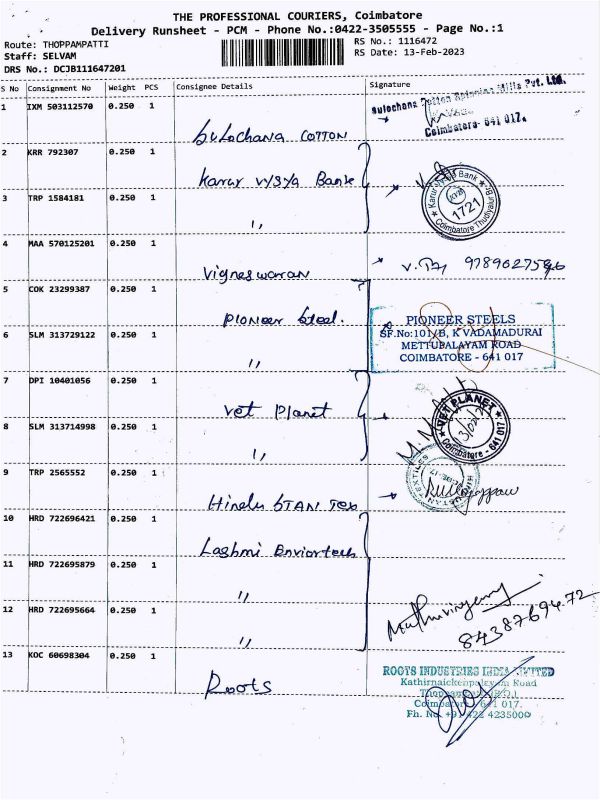 THE PROFESSIONAL COURIERS, Coimbatore
Delivery Runsheet - PCM - Phone No.:0422-3505555 - Page No.:1
Route: THOPPAMPATTI
Staff: SELVAM
DRS No.: DCJB111647201
RS No.: 1116472
RS Date: 13-Feb-2023
S No Consignment No Weight PCS Consignee Details Signature
1 IXM 503112570 0.250 1
Sulochana COTTON
Sulochana Cotton Spinning Mills Pvt. Ltd.
Coimbatore- 641 017.
2 KRR 792307 0.250 1
Karur VYSYA Bank
Karur Vysya Bank
1721
Coimbatore Thudiyalur
3 TRP 1584181 0.250 1
〃
4 MAA 570125201 0.250 1
Vigneswaran
5 COK 23299387 0.250 1
Pioneer Steel.
PIONEER STEELS
SF.No:101/B, K VADAMADURAI
METTUPALAYAM ROAD
COIMBATORE - 641 017
6 SLM 313729122 0.250 1
〃
7 DPI 10401056 0.250 1
Vet Planet
VET PLANET
Coimbatore - 641 017
8 SLM 313714998 0.250 1
〃
9 TRP 2565552 0.250 1
Hindu STAN Tex
10 HRD 722696421 0.250 1
Lashmi Enviortech
11 HRD 722695879 0.250 1
〃
12 HRD 722695664 0.250 1
〃
8438769472
13 KOC 60698304 0.250 1
Roots
ROOTS INDUSTRIES INDIA LIMITED
Kathirnaickenpalayam Road
Coimbatore 641 017.
Ph. No. +91 422 4235000